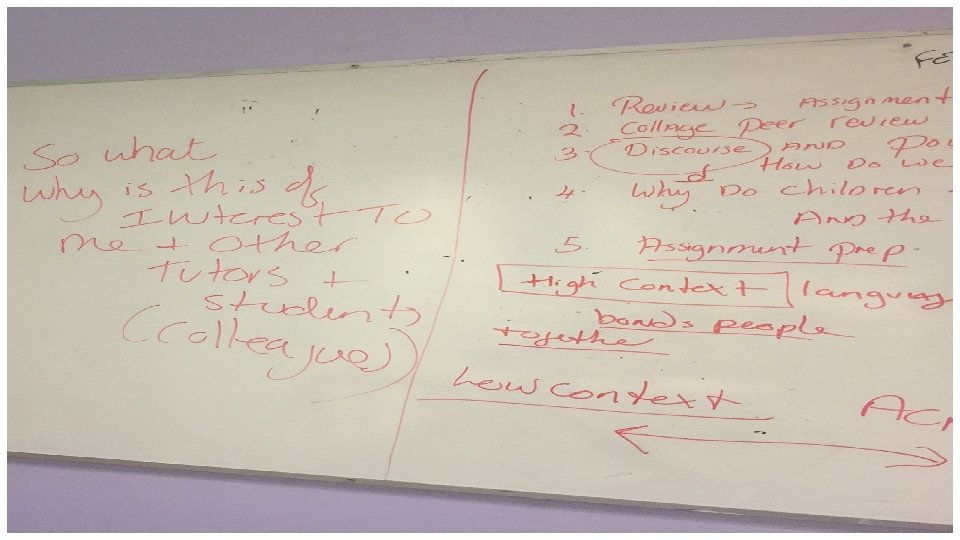 So what
Why is this of
Interest To
me + other
Tutors +
students
(Colleagues)
1. Review → Assignment
2. Collage peer review
3. Discourse AND
How Do we
4. Why Do children
And the
5. Assignment prep.
High Context
bonds people
together
Low context